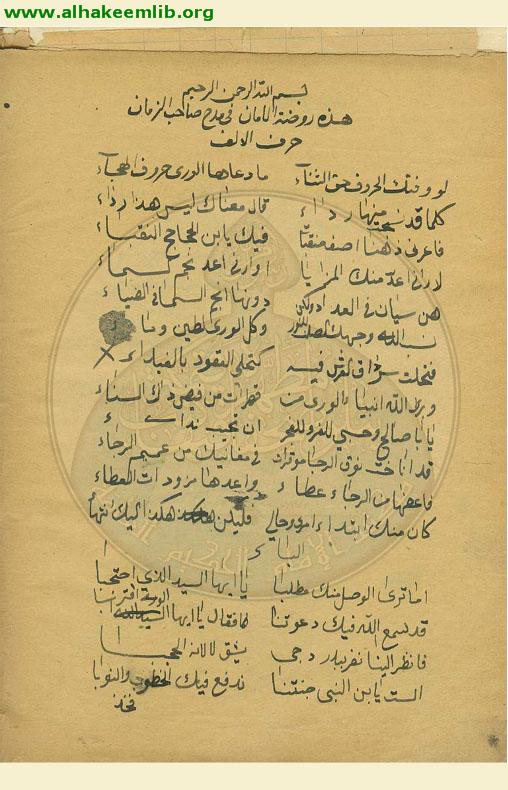 www.alhakeemlib.org
بسم الله الرحمن الرحيم
هذه روضة الامان في مدح صاحب الزمان
حرف الالف
لو وفتك الحروف حق الثناء ما دعاها الورى حروف الهجاء
كلما قد نسجت منها رداء قال معناك ليس هذا رداء
فاعرني ذهنا اصف منقبا فيك يا بن الجحاجح النقباء
لارى اعد منك المزايا او ارى اعد نجم سماء
هن سيان في العداد ولكن دونها انجم السما في الضياء
وجهك وكل الورى لطين وماء
فتجلت العرش فيه كتحلي النقود بالفيداء
وبرى الله انبياء الورى من قطرات من فيض ذاك السناء
يا ابا صالح وحسبي للفخر ان تجيب نداء
قد اناخت نوق الرجا في مغانيك من عميم الرجاء
فاعضها من الرجاء عطاء واعدها مزودات العطاء
كان منك ابتداء امري وحالي فليكن هكذا اليك انتهاء
الباء
اما ترى الوصل منك مطلبا يا ايها السيد الذي احتجبا
قد سمع الله فيك دعوتنا فقال يا ايها الورى اقتربا
فانظر الينا ببدر دجى يشق لالائه الحجبا
الست يا بن النبي جنتنا ندفع فيك الخطوب والنوبا
فخذ